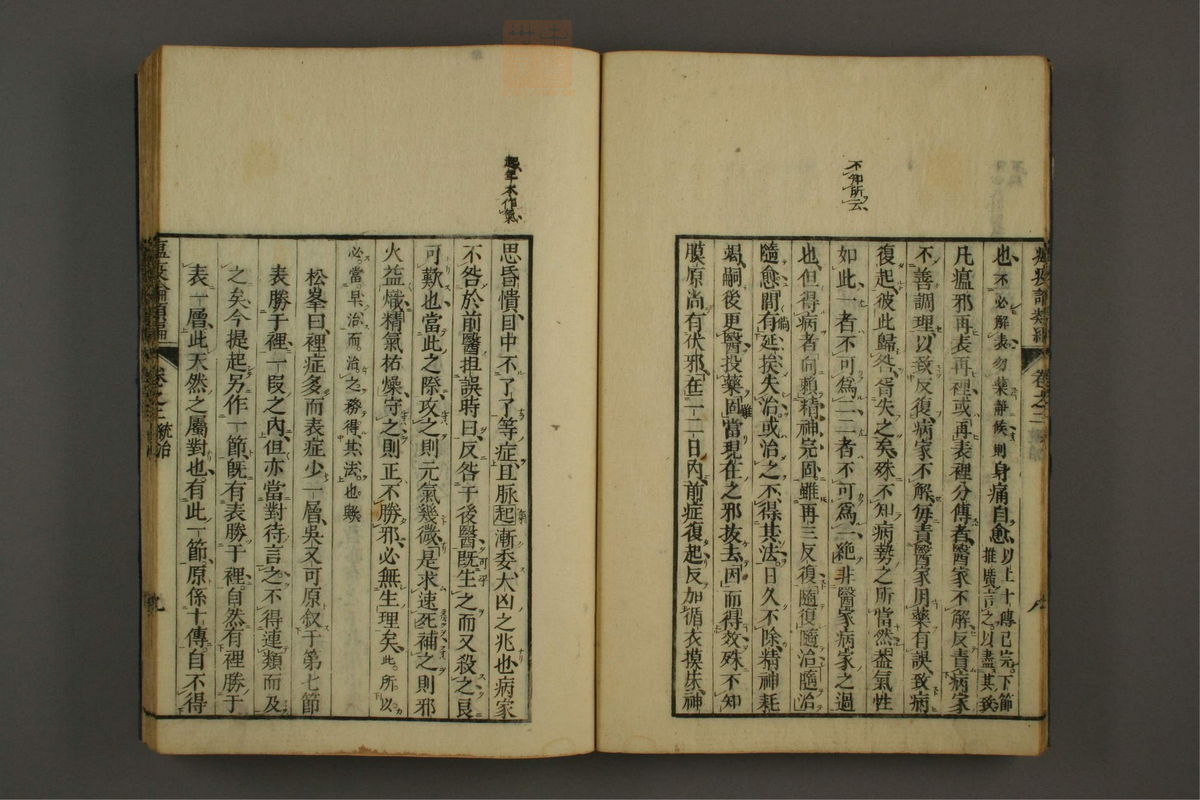 不知所云
瘟疫論類編
卷之三
也不必解表勿藥靜候則身痛自愈以上十傳已完下節推廣言之以盡其致
凡瘟邪再表再裡或再表裡分傳者醫家不解反責病家
不善調理以致反復病家不解每責醫家用藥有誤致病
復起彼此歸咎胥失之矣殊不知病勢之所當然蓋氣性
如此一者不可為二二者不可為一絕非醫家病家之過
也但得病者向賴精神完固雖再三反復隨復隨治隨治
隨愈間有延挨失治或治之不得其法日久不除精神耗
竭嗣後更醫投藥固當現在之邪拔去因而得效殊不知
膜原尚有伏邪在一二日內前症復起反加循衣摸床神
本作氣
思昏憒目中不了了等症且脈起漸委大凶之兆也病家
不咎於前醫担誤時日反咎于後醫既生之而又殺之良
可歎也當此之際攻之則元氣幾微是求速死補之則邪
火益熾精氣祐燥守之則正不勝邪必無生理矣此所以
必當早治而治之務得其法也歟
松峯曰裡症多而表症少一層吳又可原叙于第七節
表勝于裡一段之內但亦當對待言之不得連類而及
之矣今提起另作一節既有表勝于裡自然有裡勝于
表一層此天然之屬對也有此一節原係十傳自不得
瘟疫論類編
卷之三
統治
九